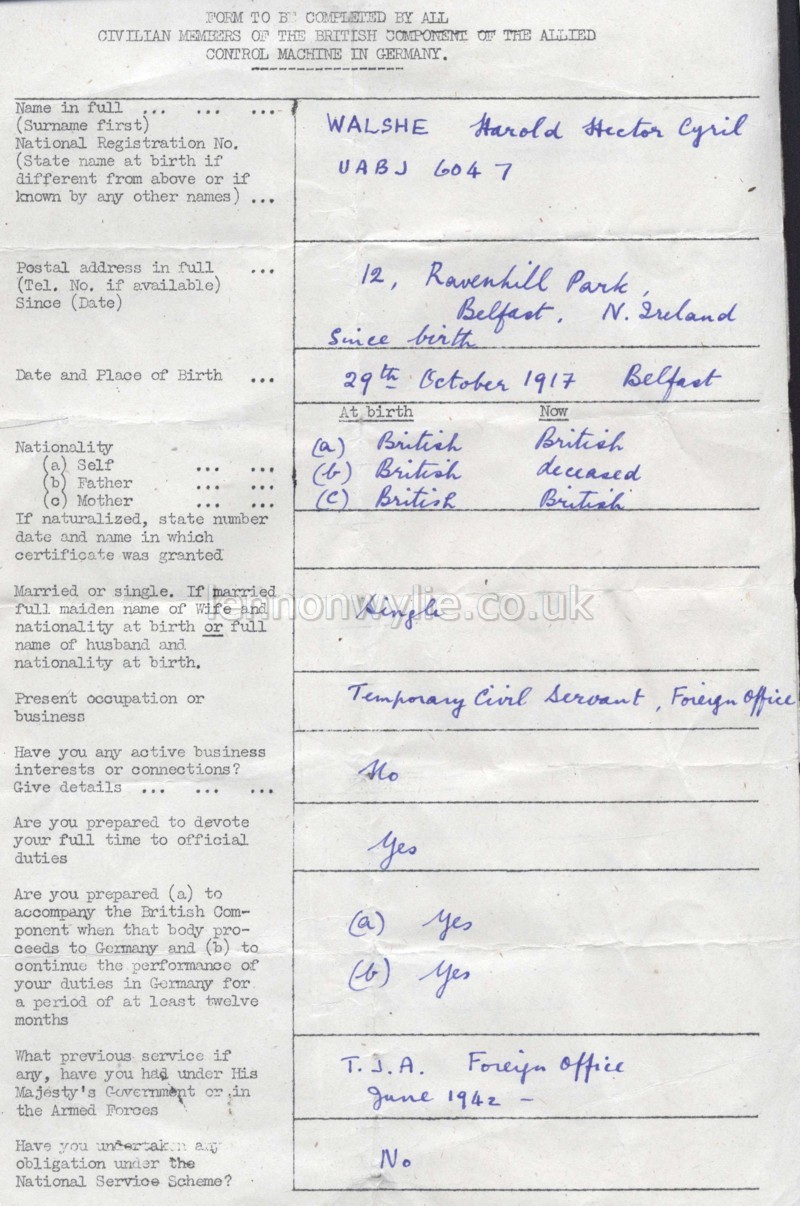 FORM TO BE COMPLETED BY ALL
CIVILIAN MEMBERS OF THE BRITISH COMPONENT OF THE ALLIED
CONTROL MACHINE IN GERMANY.
Name in full ... ... ...
(Surname first)
National Registration No.
(State name at birth if
different from above or if
known by any other names) ...
WALSHE Harold Hector Cyril
UABJ 6047
Postal address in full ...
(Tel. No. if available)
Since (Date)
12, Ravenhill Park,
Belfast, N. Ireland
Since birth
Date and Place of Birth ...
29th October 1917 Belfast
At birth Now
Nationality
(a) Self ... ...
(b) Father ... ...
(c) Mother ... ...
(a) British British
(b) British deceased
(c) British British
If naturalized, state number
date and name in which
certificate was granted
Married or single. If married
full maiden name of Wife and
nationality at birth or full
name of husband and
nationality at birth.
Single
lennonwylie.co.uk
Present occupation or
business
Temporary Civil Servant, Foreign Office
Have you any active business
interests or connections?
Give details ... ... ...
No
Are you prepared to devote
your full time to official
duties
Yes
Are you prepared (a) to
accompany the British Com-
ponent when that body pro-
ceeds to Germany and (b) to
continue the performance of
your duties in Germany for
a period of at least twelve
months
(a) Yes
(b) Yes
What previous service if
any, have you had under His
Majesty's Government or in
the Armed Forces
T.J.A. Foreign Office
June 1942 -
Have you undertaken any
obligation under the
National Service Scheme?
No